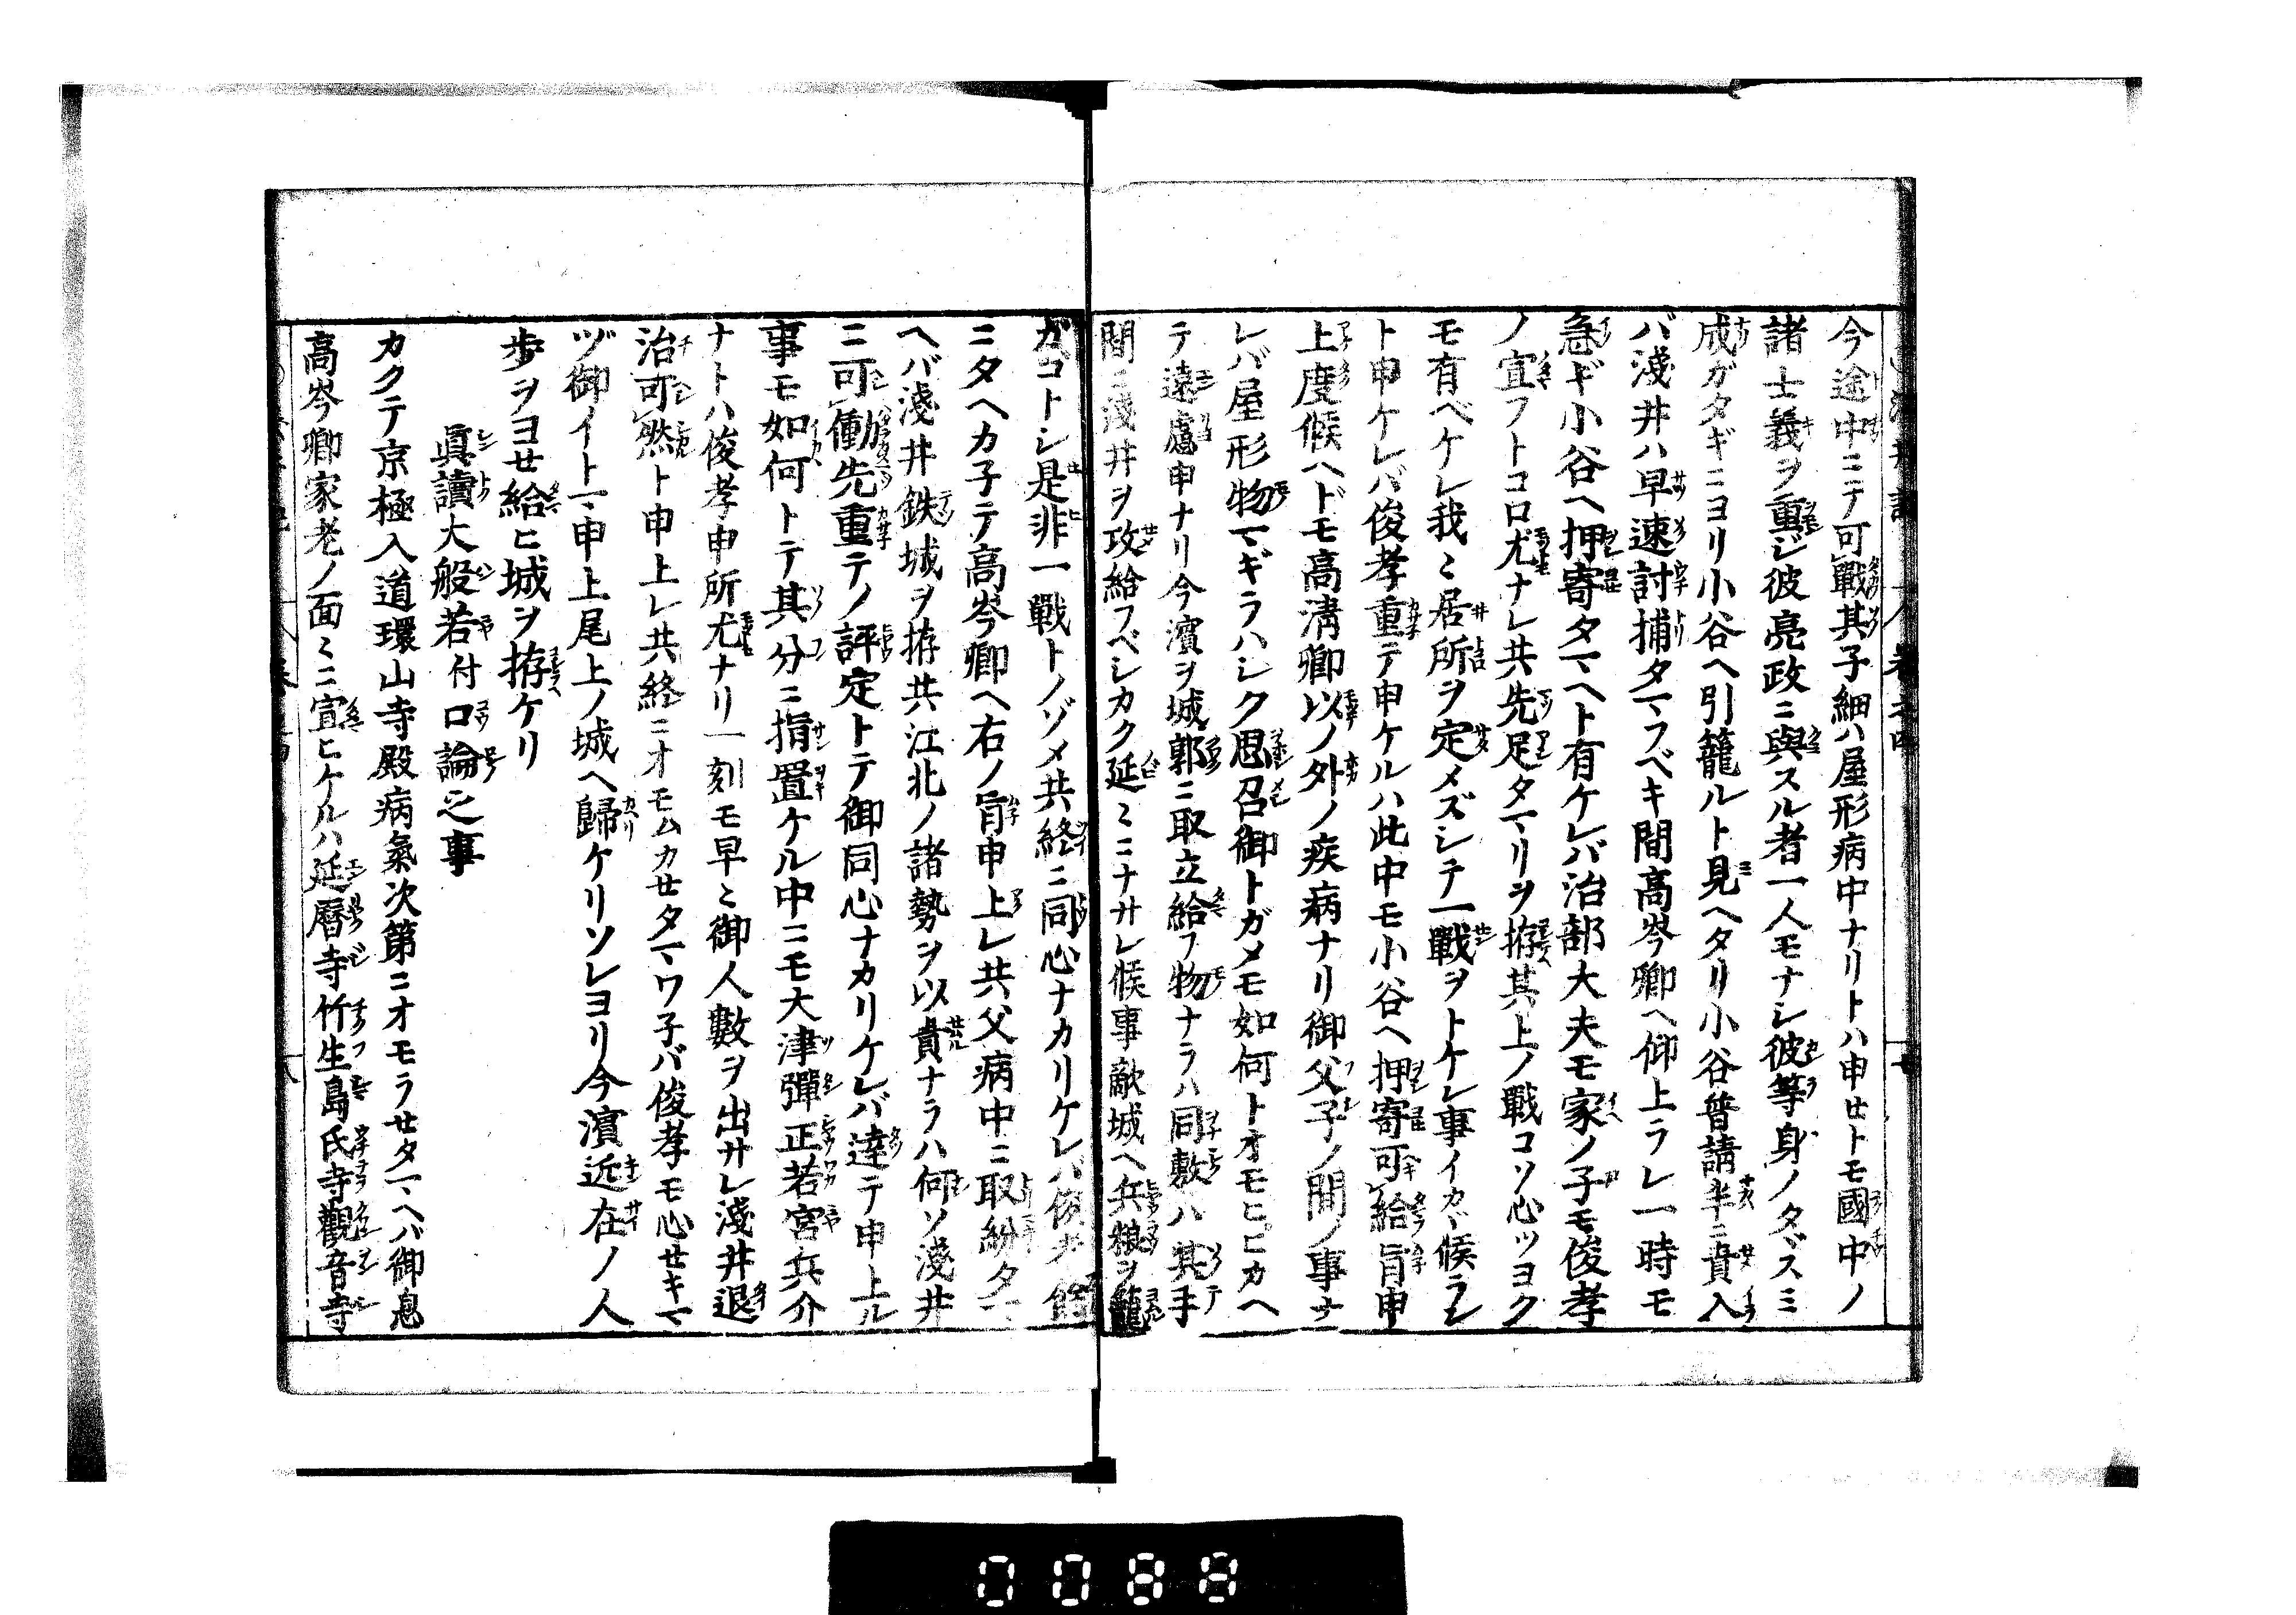 今途中ニテ可戰其子細ハ屋形病中ナリトハ申セトモ國中ノ
諸士義ヲ重ジ彼亮政ニ與スル者一人モナシ彼等身ノタヾスミ
成ガタギニヨリ小谷ヘ引籠ルト見ヘタリ小谷普請半ニ責入
バ淺井ハ早速討捕タマフベキ間高岑卿ヘ仰上ラレ一時モ
急ギ小谷ヘ押寄タマヘト有ケレバ治部大夫モ家ノ子モ俊孝
ノ宣フトコロ尤ナレ共先足タマリヲ拵其上ノ戰コソ心ツヨク
モ有ベケレ我々居所ヲ定メズシテ一戰ヲトケレ事イカヽ候ラレ
ト申ケレバ俊孝重テ申ケルハ此中モ小谷ヘ押寄可給旨申
上度候ヘドモ高淸卿以ノ外ノ疾病ナリ御父子ノ間ノ事ナ
レバ屋形物マギラハシク思召御トガメモ如何トオモヒヒカヘ
テ遠慮申ナリ今濱ヲ城郭ニ取立給フ物ナラハ同敷ハ其手
間ニ淺井ヲ攻給フベシカク延々ニナサレ候事敵城ヘ兵粮ヲ籠
ガコトシ是非一戰トノゾメ共終ニ同心ナカリケレバ俊孝餘
ニタヘカ子テ高岑卿ヘ右ノ旨申上レ共父病中ニ取紛タマ
ヘバ淺井鉄城ヲ拵共江北ノ諸勢ヲ以責ナラハ何ソ淺井
ニ可働先重テノ評定トテ御同心ナカリケレバ達テ申上ル
事モ如何トテ其分ニ指置ケル中ニモ大津彈正若宮兵介
ナトハ俊孝申所尤ナリ一刻モ早々御人數ヲ出サレ淺井退
治可然ト申上レ共終ニオモムカセタマワ子バ俊孝モ心セキマ
ヅ御イトマ申上尾上ノ城ヘ歸ケリソレヨリ今濱近在ノ人
歩ヲヨセ給ヒ城ヲ拵ケリ
眞讀大般若付口論之事
カクテ京極入道環山寺殿病氣次第ニオモラセタマヘバ御息
高岑卿家老ノ面々ニ宣ヒケルハ延曆寺竹生島氏寺觀音寺
0088